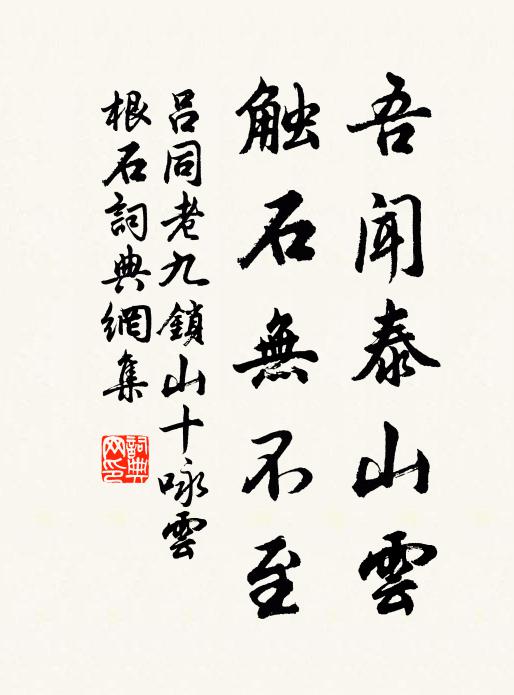 吾闻泰山雲
触石無不至
吕同老九鎖山十咏雲
根石詞典網集
詞典
网印